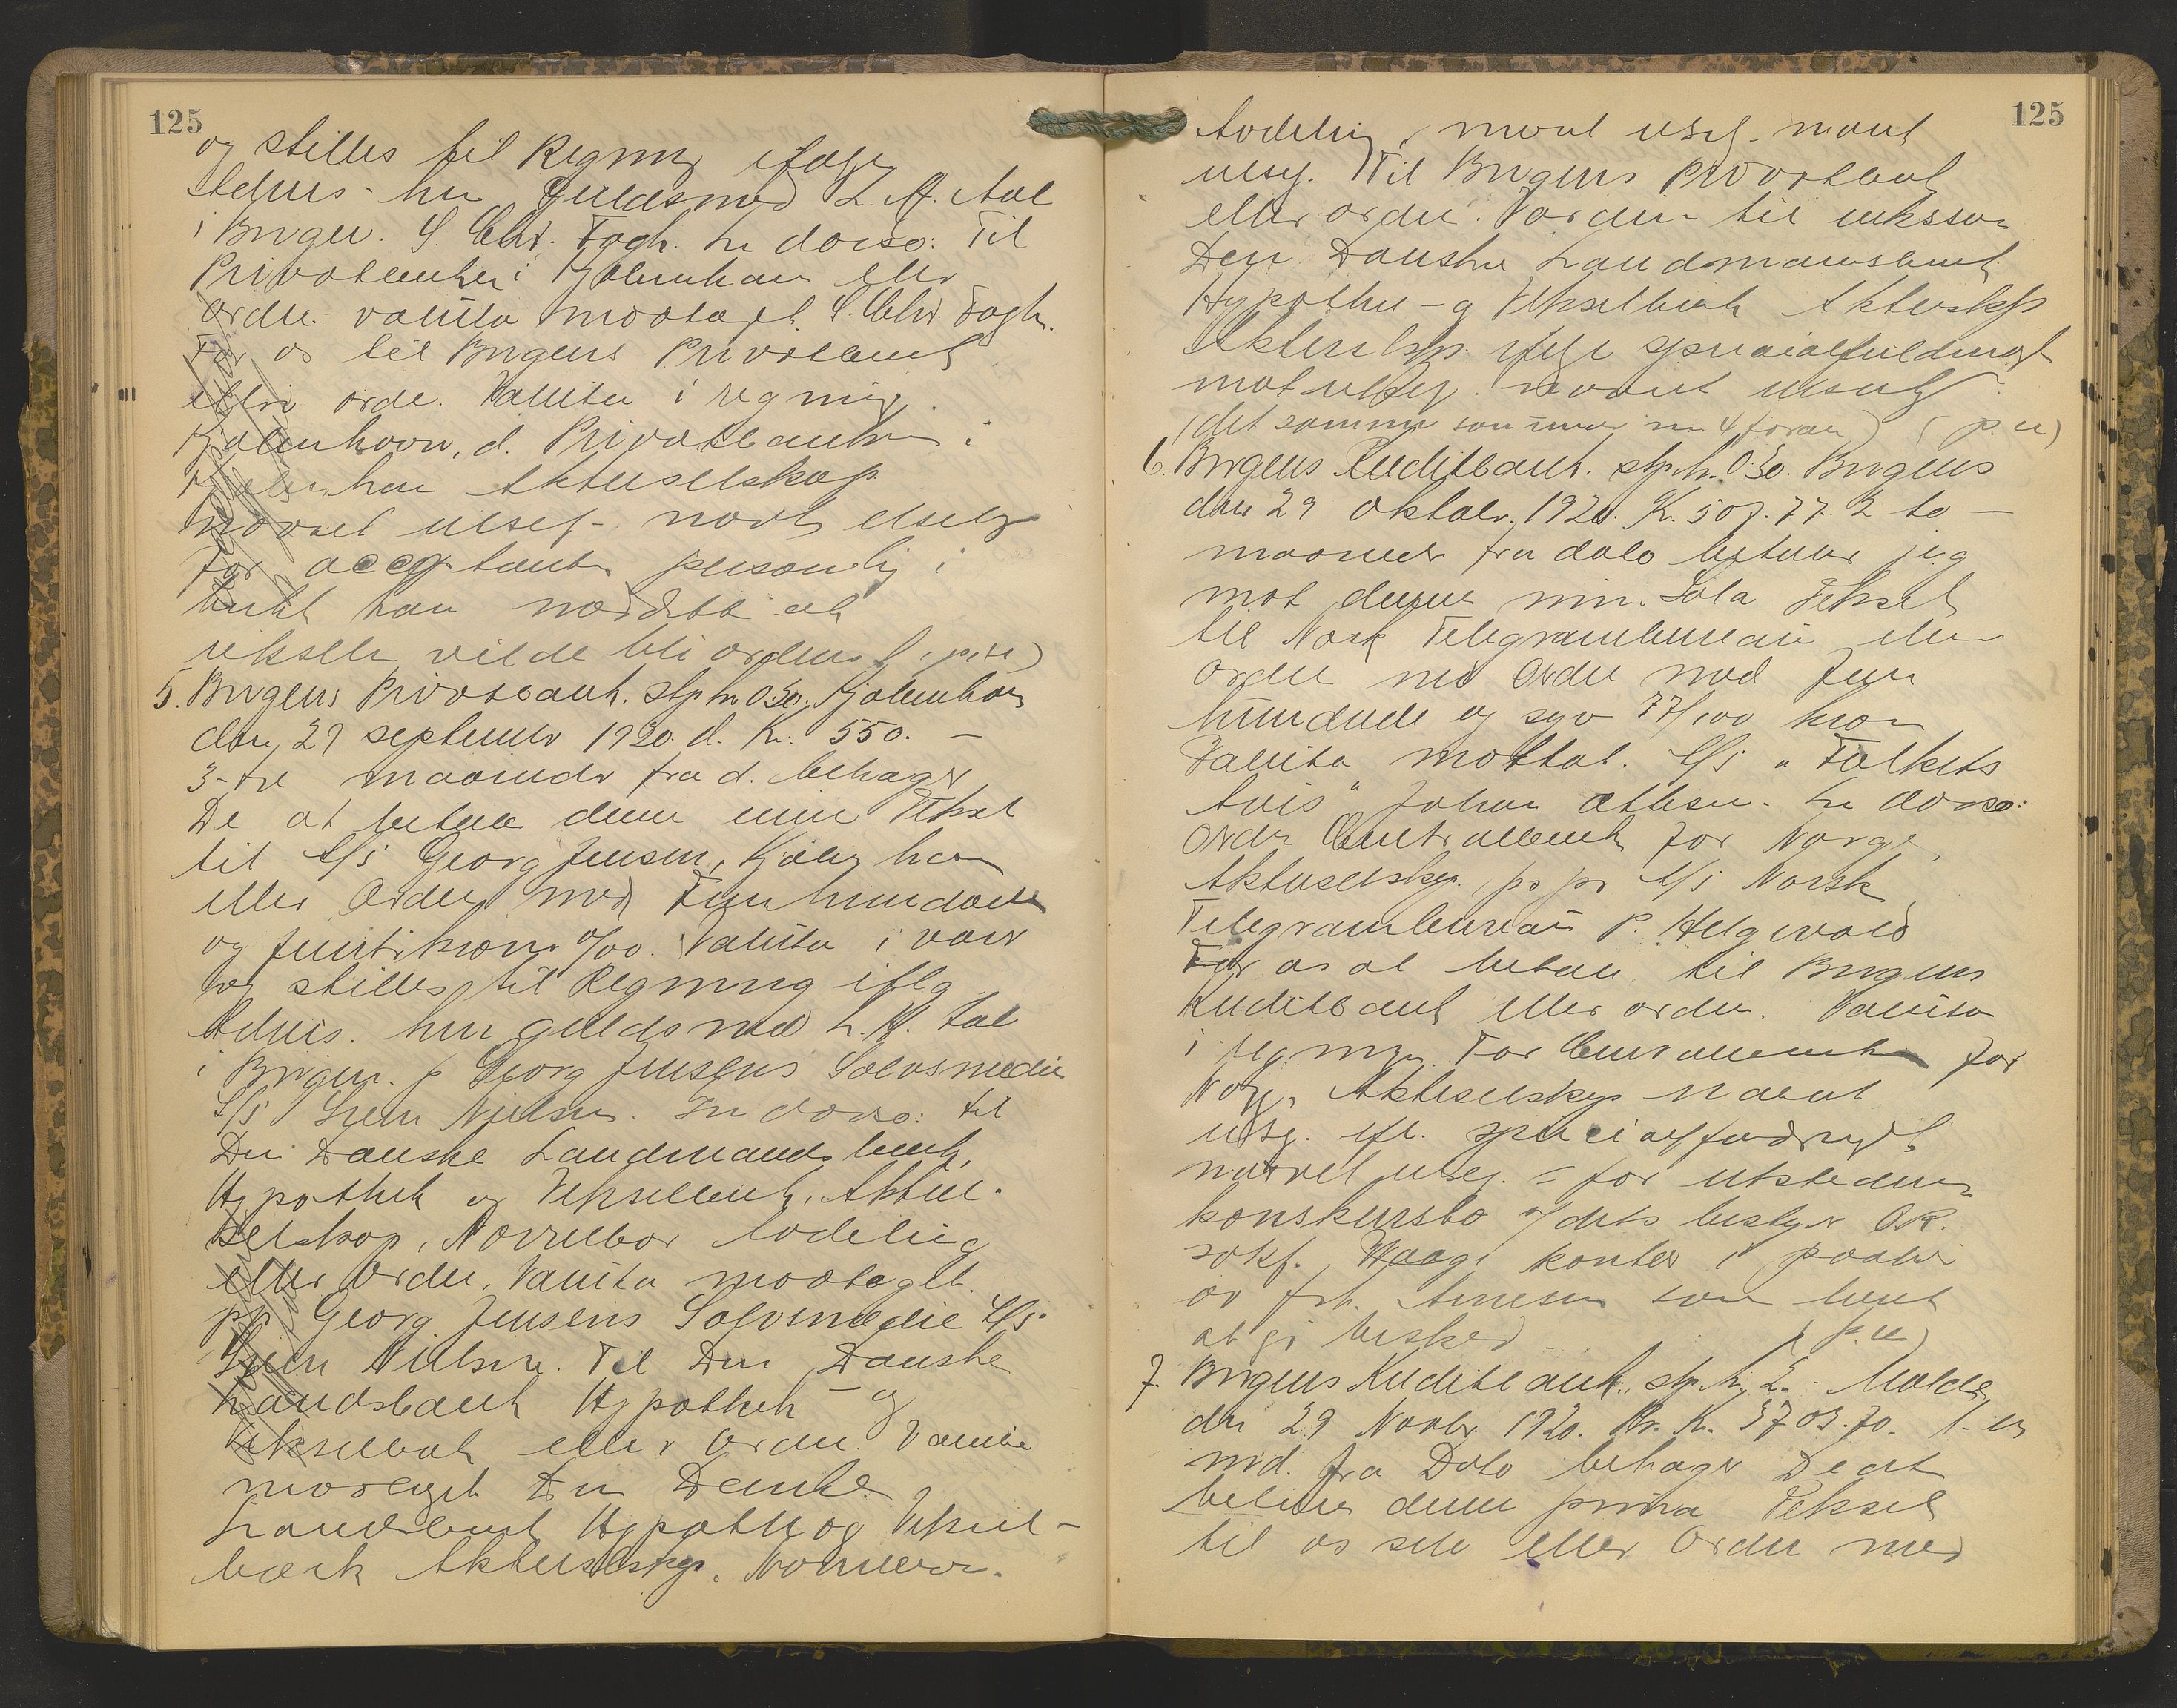 125
og stilles til Regning ifølge
Advis. hr. Guldsmed L. A. Aal
i Bergen. S. Chr. Fogh. In dorso: Til
Privatbanken i Kjøbenhavn eller
ordre. valuta modtaget S. Chr. Fogh.
For os til Bergens Privatbank
eller ordre. Valuta i regning.
Kjøbenhavn, d. Privatbanken i
Kjøbenhavn Aktieselskap.
navnet utsl.- navnet utsl.
For acceptanten personlig i
butik han at
vekslen vilde bli ordnet (p.u)
5. Bergens Privatbank. stp.m. 0.30. Kjøbenhavn
den 29 september 1920. d. Kr. 550. -
3-tre maaneder fra d. behager
De at betale denne min Veksel
til A/S Georg Jensen, Kjøbenhavn
eller Ordre med Fem hundrede
og femti kroner 0/00. Valuta i varer
og stilles til Regning iflg
Advis. herr guldsmed L. A. Aal
i Bergen. p Georg Jensens Sølvsmedie
A/S Nielsen. In dorso: til
Den Danske Landmandsbank,
Hypothek og Vekselbank, Aktie-
selskap, Nørrebro Avdeling
eller Ordre, Valuta modtaget.
pp Georg Jensens Sølvsmedie A/S.
Nielsen. Til Den Danske
Landsbank Hypothek - og
Vekselbank eller Ordre. Valuta
modtaget Den Danske
Landsbank Hypothek og Veksel-
bank Aktieselskap. Nørrebro.
125
Avdeling, navnet utsl. navnet
utsl. Til Bergens Privatbank
eller ordre. Værdien til inkasso.
Den Danske Landmandsbank
Hypothek - og Vekselbank Aktieselskap
Aktieselsk. ifølge specialfuldmagt
navnet utsl. navnet utslg.
(det samme som under nr 4 foran) (p.u)
6. Bergens Kreditbank. stp.m. 0.30. Bergens
den 29 oktober. 1920. Kr. 507.77. 2 to -
maaneder fra dato betaler jeg
mot denne min Sola Veksel
til Norsk Telegrambureau eller
ordre med Ordre med Fem
hundrede og syv 77/100 kroner
Valuta mottat. A/S "Folkets
Avis" Johan Ottesen. In dorso:
Ordre Centralbanken for Norge,
Aktieselskap. pr pr A/S Norsk
Telegrambureau P. Helgevold
For os at betale til Bergens
Kreditbank eller ordre. Valuta
i regning. For Centralbanken for
Norge, Aktieselskap navnet
utsl. ifl. specialfuldmagt,
navnet utsl. - for utstederens
konkursbo v/ dets bestyrer OR.
sakf. Waage kontor i paahør
av frk. Arnesen som lovet
at gi besked. (p.u)
7. Bergens Kreditbank., stp.m. 2.- Molde,
den 29 Novbr. 1920. Kr. 3703.70. 1-en
md. fra Dato behager De at
betale denne prima Veksel
til os selv eller Ordre med